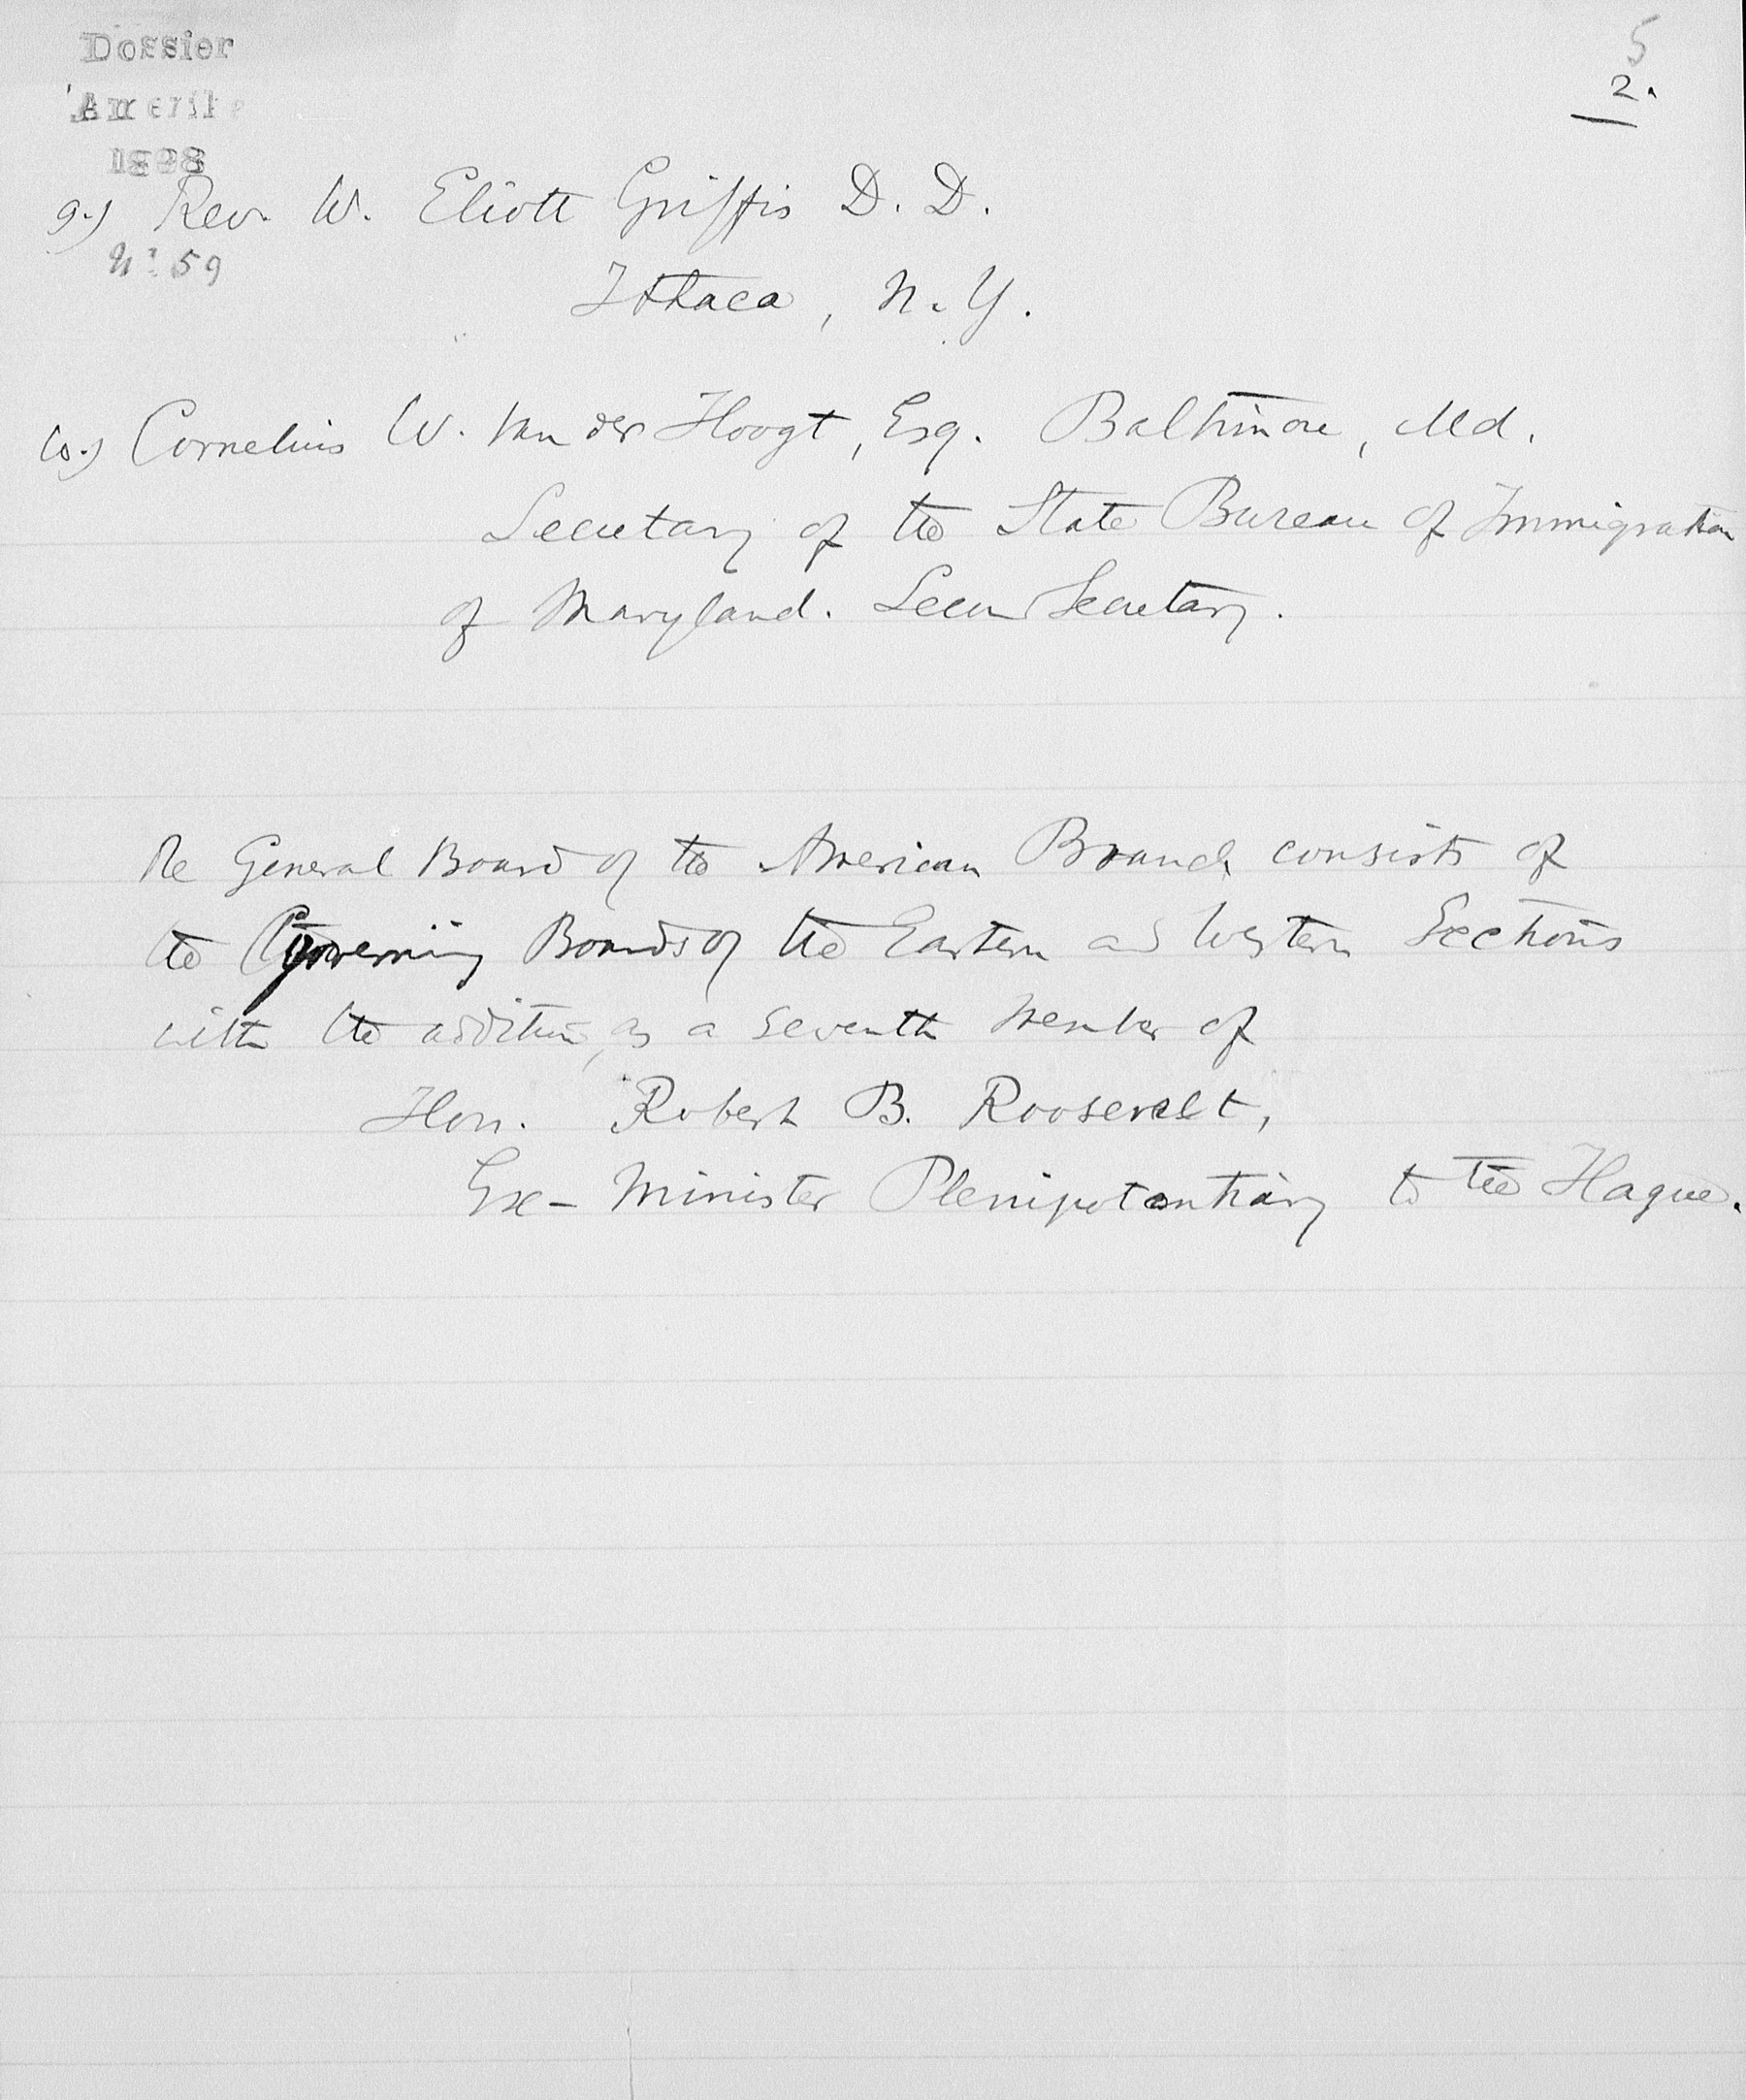 Dossier
Amerika
1898
5
2.
9.) Rev. W. Eliott Griffis D. D.
No. 59
Ithaca, N. Y.
10.) Cornelius W. Van der Hoogt, Esq. Baltimore, Md.
Secretary of the State Bureau of Immigration
of Maryland. Secretary.
The General Board of the American Branch consists of
the Governing Boards of the Eastern and Western Sections
with the addition, as a seventh member of
Hon. Robert B. Roosevelt,
Ex-Minister Plenipotentiary to the Hague.